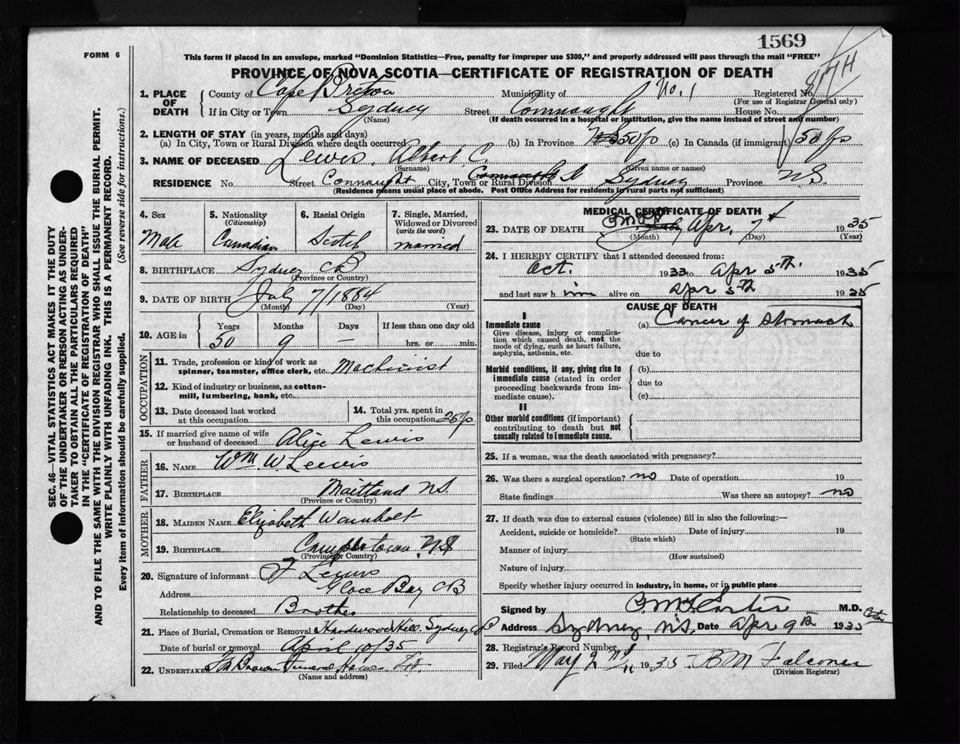 1569
FORM 6
This form if placed in an envelope, marked "Dominion Statistics—Free, penalty for improper use $300," and properly addressed will pass through the mail "FREE"
PROVINCE OF NOVA SCOTIA—CERTIFICATE OF REGISTRATION OF DEATH
1. PLACE OF DEATH County of Cape Breton Municipality of No. 1 Registered No.
(For use of Registrar General only)
If in City or Town Sydney Street Connaught House No.
(Name) (If death occurred in a hospital or institution, give the name instead of street and number)
2. LENGTH OF STAY (in years, months and days)
(a) In City, Town or Rural Division where death occurred (b) In Province 50 yrs (c) In Canada (if immigrant) 50 yrs
3. NAME OF DECEASED Lewis, Albert C.
(Surname) (Given name or names)
RESIDENCE No. Street Connaught City, Town or Rural Division Sydney Province N.S.
(Residence means usual place of abode. Post Office Address for residents in rural parts not sufficient)
4. Sex Male
5. Nationality (Citizenship) Canadian
6. Racial Origin Scotch
7. Single, Married, Widowed or Divorced (write the word) married
8. BIRTHPLACE Sydney CB
(Province or Country)
9. DATE OF BIRTH July 7/1884
(Month) (Day) (Year)
10. AGE in Years Months Days If less than one day old
50 9 — hrs. or min.
OCCUPATION
11. Trade, profession or kind of work as spinner, teamster, office clerk, etc. Machinist
12. Kind of industry or business, as cotton-mill, lumbering, bank, etc.
13. Date deceased last worked at this occupation
14. Total yrs. spent in this occupation 25 yrs
15. If married give name of wife or husband of deceased Alice Lewis
FATHER
16. NAME Wm W Lewis
17. BIRTHPLACE Maitland NS
(Province or Country)
MOTHER
18. MAIDEN NAME Elizabeth
19. BIRTHPLACE NS
(Province or Country)
20. Signature of informant Lewis
Address Glace Bay CB
Relationship to deceased Brother
21. Place of Burial, Cremation or Removal Hardwood Hill, Sydney
Date of burial or removal April 10/35
22. UNDERTAKER Funeral
(Name and address)
MEDICAL CERTIFICATE OF DEATH
23. DATE OF DEATH Apr. 7th 1935
(Month) (Day) (Year)
24. I HEREBY CERTIFY that I attended deceased from:
Oct. 1933 to Apr 5th. 1935
and last saw him alive on Apr 5th 1935
CAUSE OF DEATH
I
Immediate cause (a) Cancer of Stomach
Give disease, injury or complication which caused death, not the mode of dying, such as heart failure, asphyxia, asthenia, etc.
due to
Morbid conditions, if any, giving rise to immediate cause (stated in order proceeding backwards from immediate cause). (b)
due to
(c)
II
Other morbid conditions (if important) contributing to death but not causally related to immediate cause.
25. If a woman, was the death associated with pregnancy?
26. Was there a surgical operation? no Date of operation 19
State findings Was there an autopsy? no
27. If death was due to external causes (violence) fill in also the following:—
Accident, suicide or homicide? Date of injury 19
(State which)
Manner of injury
(How sustained)
Nature of injury
Specify whether injury occurred in industry, in home, or in public place
Signed by M.D.
Address Sydney, N.S. Date Apr 9th 1935
28. Registrar's Record Number
29. Filed May 2nd 1935 B M Falconer
(Division Registrar)
SEC. 46—VITAL STATISTICS ACT MAKES IT THE DUTY
OF THE UNDERTAKER OR PERSON ACTING AS UNDER-
TAKER TO OBTAIN ALL THE PARTICULARS REQUIRED
IN THE "CERTIFICATE OF REGISTRATION OF DEATH"
AND TO FILE THE SAME WITH THE DIVISION REGISTRAR WHO SHALL ISSUE THE BURIAL PERMIT.
WRITE PLAINLY WITH UNFADING INK. THIS IS A PERMANENT RECORD.
Every item of information should be carefully supplied. (See reverse side for instructions.)